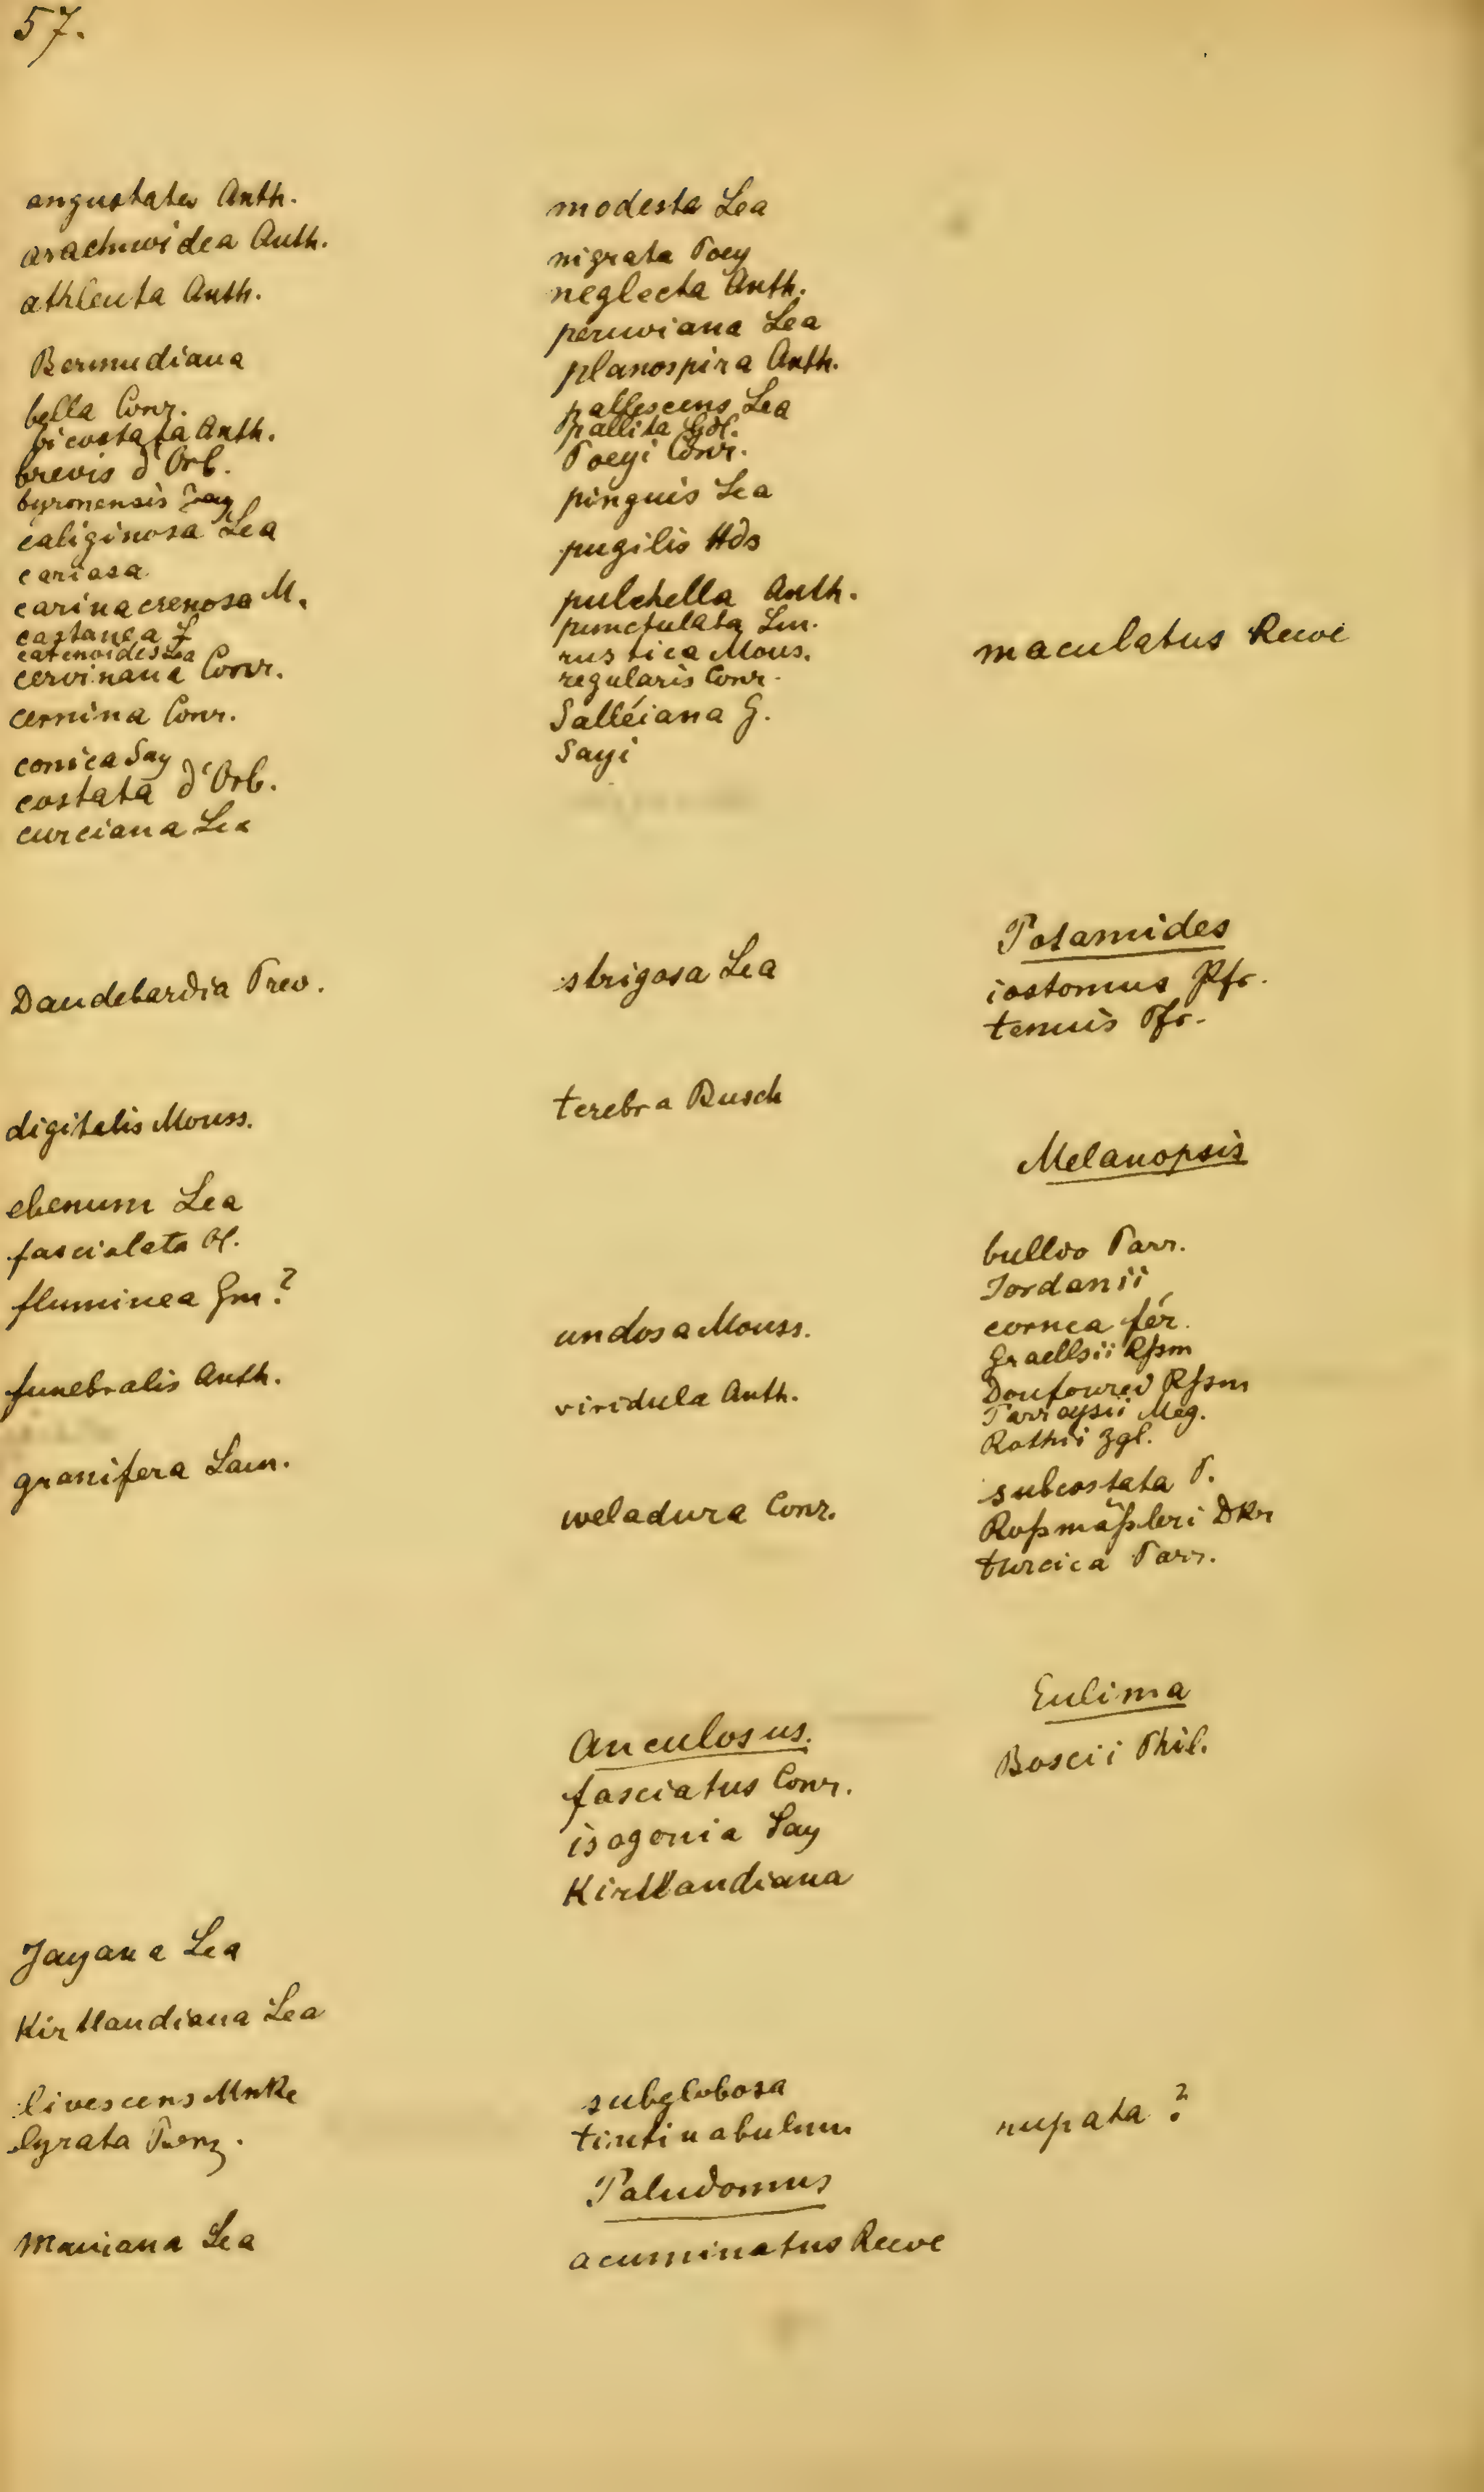 57.
angustata Anth.
arachnoidea Anth.
athleuta Anth.
Bermudiana
bella Conr.
bicostata Anth.
brevis d'Orb.
byronensis Jay
caliginosa Lea
cariosa
carinacrenosa M.
castanea L
catenoides Lea
cervinana Conr.
cernina Conr.
conica Say
costata d'Orb.
curciana Lea
Daudebardia Prev.
digitalis Mouss.
ebenum Lea
fasciolata Ol.
fluminea Gm?
funebralis Anth.
granifera Lam.
Jayana Lea
Kirtlandiana Lea
livescens Mnke
lyrata
Maniana Lea
modesta Lea
nigrata Poey
neglecta Anth.
peruviana Lea
planospira Anth.
pallescens Lea
pallita Gdl.
Poeyi Conr.
pinguis Lea
pugilis Hds
pulchella Anth.
punctulata Lm.
rustica Mous.
regularis Conr.
Salléiana G.
Sayi
strigosa Lea
terebra Busch
undosa Mouss.
viridula Anth.
weladura Conr.
Anculosus.
fasciatus Conr.
isogonia Say
Kirtlandiana
subglobosa
tintinabulum
Paludomus
acuminatus Reeve
maculatus Reeve
Potamides
iostomus Pfr.
tenuis Pfr.
Melanopsis
bulloo Parr.
Jordanii
cornea fér.
Graellsii Rßm
Doufourei Rßm
Parroysii Meg.
Rothii Zgl.
subcostata P.
Roßmäßleri Dkr
turcica Parr.
Eulima
Boscii Phil.
rupata ?